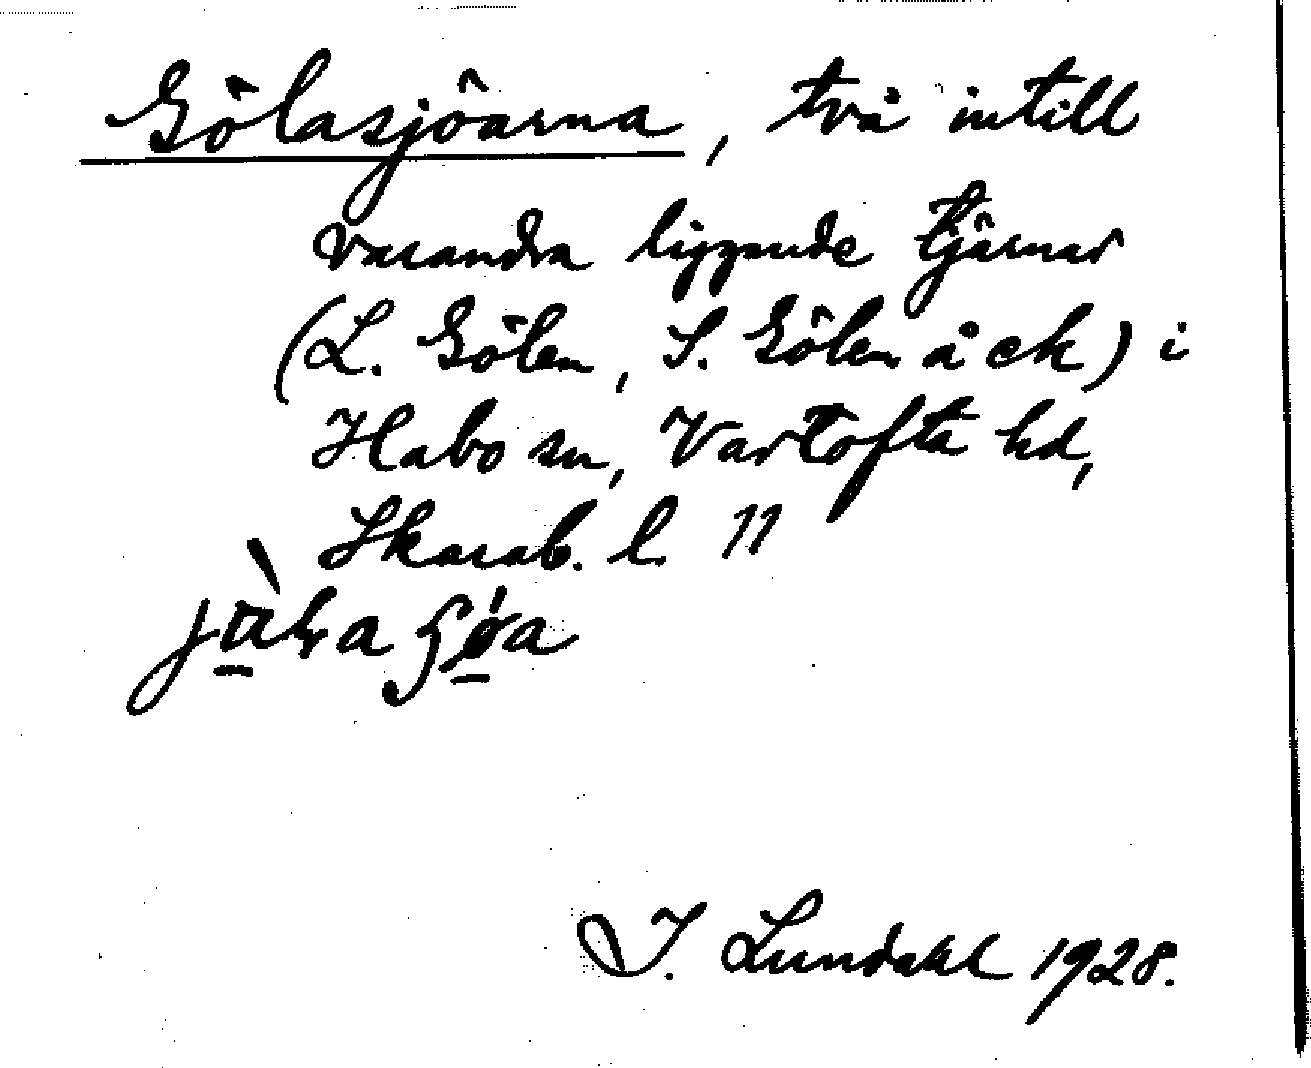 Gölasjöarna, två intill
varandra liggande tjärnar
(L. Gölen, S. Gölen å ek) i
Habo sn, Vartofta hd,
Skarab. l. 11
I. Lundahl 1928.